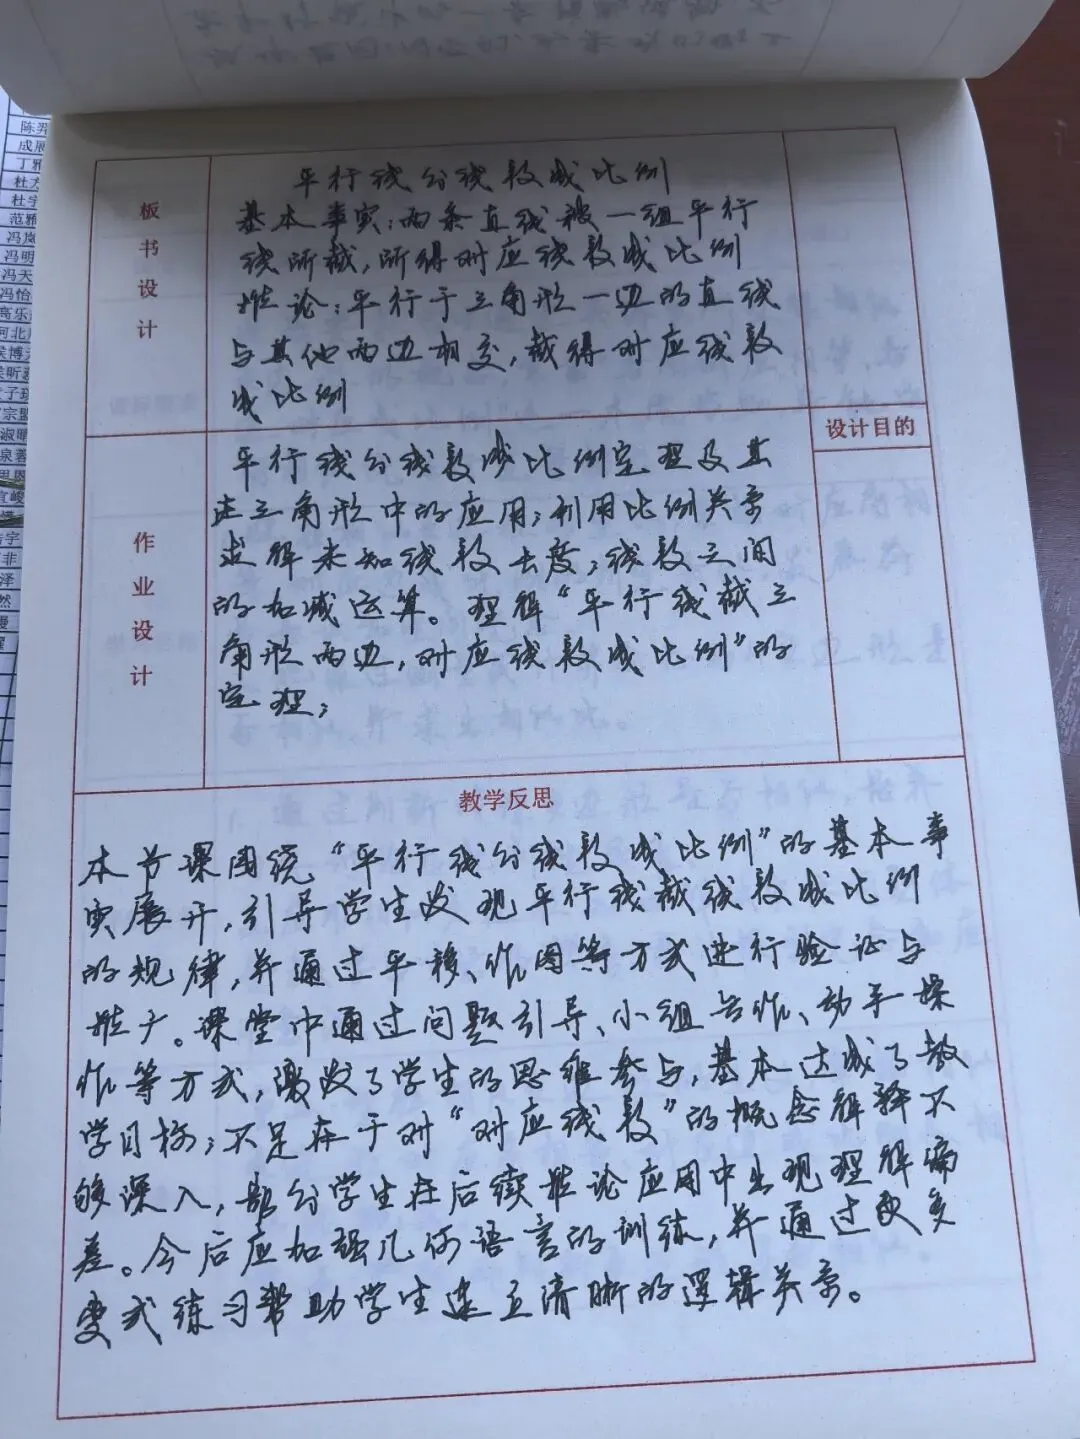 陈羿
成展
丁雅
杜方
杜宇
范雅
冯岚
冯明
冯天
冯怡
高乐
河北
宗盟
淑晴
泉蓉
宜峻
宇
非
泽
然
板书设计
平行线分线段成比例
基本事实:两条直线被一组平行
线所截,所得对应线段成比例
推论:平行于三角形一边的直线
与其他两边相交,截得对应线段
成比例
设计目的
作业设计
平行线分线段成比例定理及其
在三角形中的应用;利用比例关系
求解未知线段长度;线段之间
的加减运算。理解“平行线截三
角形两边,对应线段成比例”的
定理;
教学反思
本节课围绕“平行线分线段成比例”的基本事
实展开,引导学生发现平行线截线段成比例
的规律,并通过平移、作图等方式进行验证与
推广。课堂中通过问题引导、小组合作、动手操
作等方式,激发了学生的思维参与,基本达成了教
学目标;不足在于对“对应线段”的概念解释不
够深入,部分学生在后续推论应用中出现理解偏
差。今后应加强几何语言的训练,并通过更多
变式练习帮助学生建立清晰的逻辑关系。